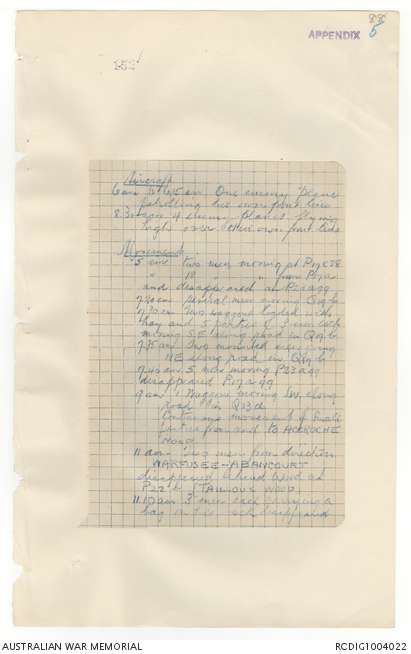 88
APPENDIX 5
152
Aircraft
6 am to 6.45 am One enemy plane
patrolling his own front line
8.30 am 4 enemy planes flying
high over their own front line
Movement
5 am two men moving at
" 10 " " " from
and disappeared in P23a99
7.20 am several men moving Q19b
7.30 am Two waggons loaded with
hay and 5 parties of 3 men each
moving S.E. along road in Q19b
7.35 am Two mounted men going
N E along road in Q19b
7.40 am 5 men moving P23a99
disappeared P17a99
9 am 1 Waggon moving SW along
road in P23d
Continuous movement of small
parties from and to ACCROCHE
WOOD
11 am two men from direction
WARFUSEE-ABANCOURT
disappeared behind wood at
P22 TAILLOUX WOOD
11.10 am 3 men each carrying a
bag disappeared
AUSTRALIAN WAR MEMORIAL
RCDIG1004022